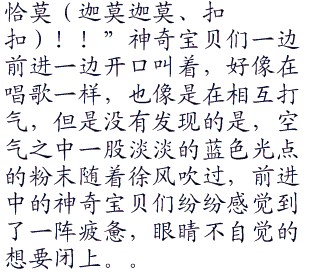 恰莫（迦莫迦莫、扣
扣）！！”神奇宝贝们一边
前进一边开口叫着，好像在
唱歌一样，也像是在相互打
气，但是没有发现的是，空
气之中一股淡淡的蓝色光点
的粉末随着徐风吹过，前进
中的神奇宝贝们纷纷感觉到
了一阵疲惫，眼睛不自觉的
想要闭上。。